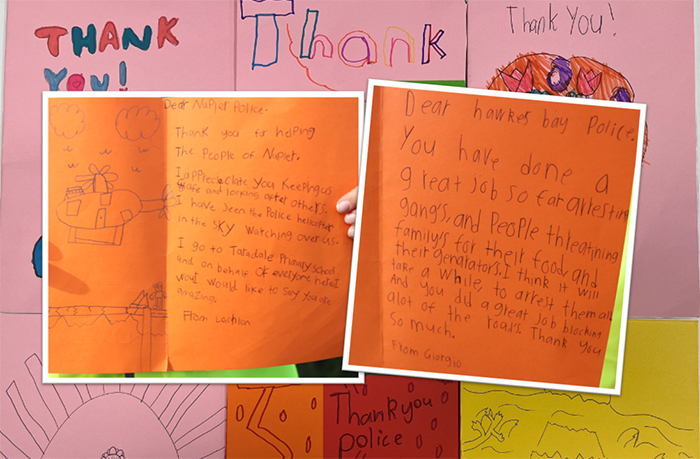 THANK
YOU!
Thank
Thank You!
Dear Napier Police.
Thank you for helping
The People of Napier.
I appreciate you Keeping us
safe and looking after others.
I have seen the Police helicopter
in the sky watching over us.
I go to Taradale Primary school
and on behalf of everyone here I
would like to say you are
amazing.
From Lachlan
Dear hawkes bay Police.
You have done a
great job so far arresting
gang's, and People threatining
family's for their food and
their genarators. I think it will
take a while to arrest them all
And you did a great job blocking
alot of the road's. Thank you
so much.
From Giorgio
Thank you
police